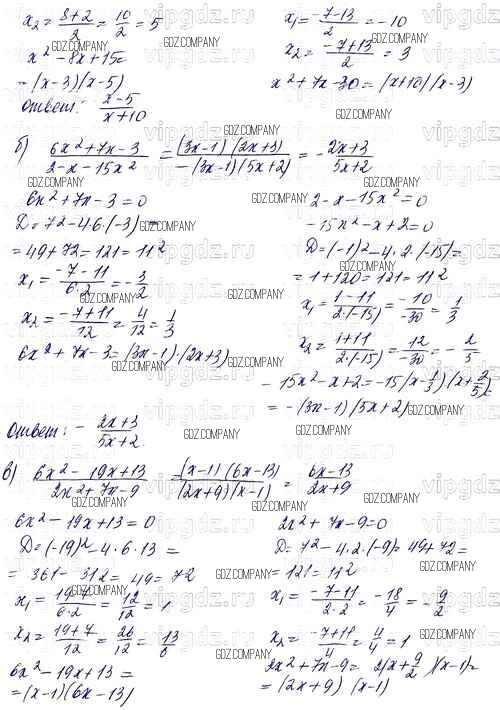 x₂ = (8+2)/2 = 10/2 = 5
x² - 8x + 15 =
= (x-3)(x-5)
Ответ: (x-5)/(x+10)
x₁ = (-7-13)/2 = -10
x₂ = (-7+13)/2 = 3
x² + 7x - 30 = (x+10)(x-3)
б) (6x² + 7x - 3)/(2 - x - 15x²) = ((3x-1)(2x+3))/(-(3x-1)(5x+2)) = -(2x+3)/(5x+2)
6x² + 7x - 3 = 0
D = 7² - 4·6·(-3) =
= 49 + 72 = 121 = 11²
x₁ = (-7-11)/(6·2) = -3/2
x₂ = (-7+11)/12 = 4/12 = 1/3
6x² + 7x - 3 = (3x-1)·(2x+3)
2 - x - 15x² = 0
-15x² - x + 2 = 0
D = (-1)² - 4·2·(-15) =
= 1 + 120 = 121 = 11²
x₁ = (1-11)/(2·(-15)) = -10/-30 = 1/3
x₂ = (1+11)/(2·(-15)) = 12/-30 = -2/5
-15x² - x + 2 = -15(x - 1/3)(x + 2/5) =
= -(3x-1)(5x+2)
Ответ: -(2x+3)/(5x+2)
в) (6x² - 19x + 13)/(2x² + 7x - 9) = ((x-1)(6x-13))/((2x+9)(x-1)) = (6x-13)/(2x+9)
6x² - 19x + 13 = 0
D = (-19)² - 4·6·13 =
= 361 - 312 = 49 = 7²
x₁ = (19-7)/(6·2) = 12/12 = 1
x₂ = (19+7)/12 = 26/12 = 13/6
6x² - 19x + 13 =
= (x-1)(6x-13)
2x² + 7x - 9 = 0
D = 7² - 4·2·(-9) = 49 + 72 =
= 121 = 11²
x₁ = (-7-11)/(2·2) = -18/4 = -9/2
x₂ = (-7+11)/4 = 4/4 = 1
2x² + 7x - 9 = 2(x + 9/2)(x-1) =
= (2x+9)(x-1)
GDZ.COMPANY
vipgdz.ru